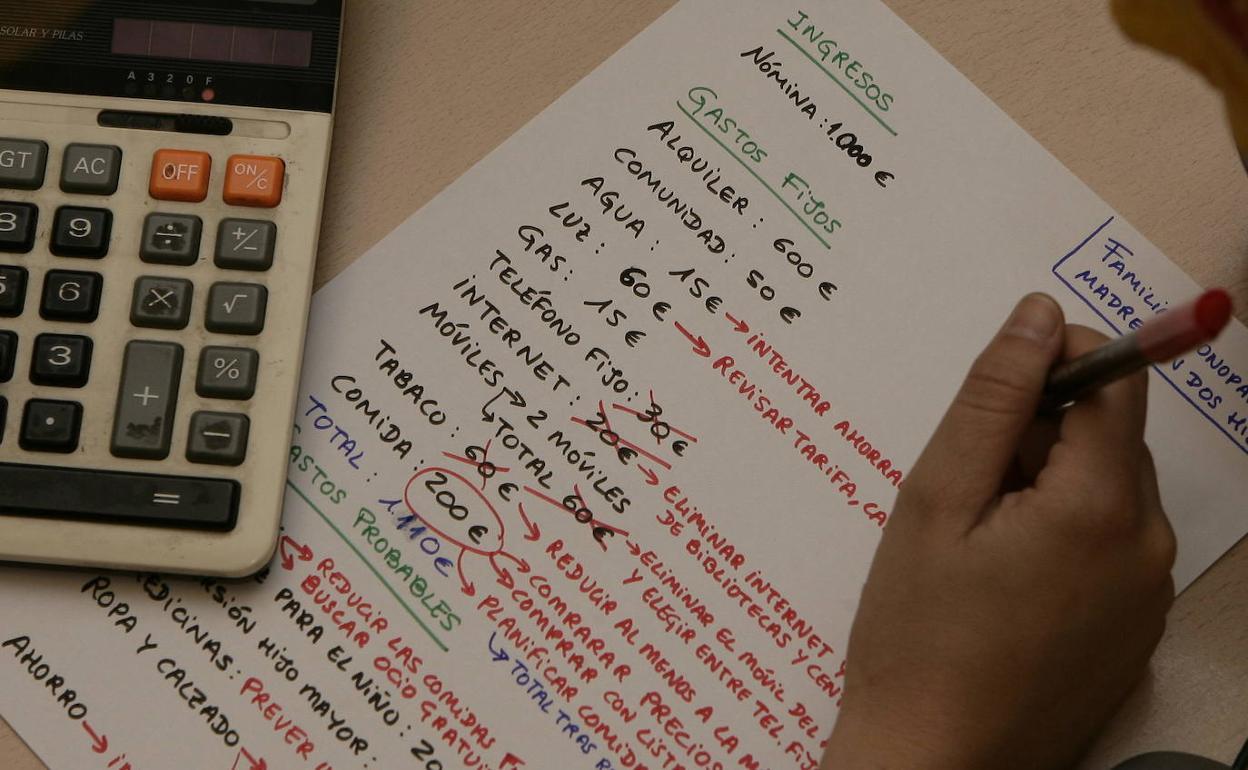 SOLAR Y PILAS
A 3 2 0 F
GT AC OFF ON/C
8 9 ÷ +/−
5 6 × √
3 + %
. −
=
INGRESOS
NÓMINA: 1.000 €
GASTOS FIJOS
ALQUILER: 600 €
COMUNIDAD: 50 €
AGUA: 15 € → INTENTAR
LUZ: 60 € → REVISAR TARIFA,
GAS: 15 €
TELÉFONO FIJO: 30 €
INTERNET: 20 € → ELIMINAR INTERNET Y
DE BIBLIOTECAS Y
MÓVILES → 2 MÓVILES
TOTAL 60 € → ELIMINAR EL MÓVIL DEL
Y ELEGIR ENTRE TEL. FIJ
TABACO: 60 € → REDUCIR AL MENOS A LA
COMIDA: 200 € → COMPARAR PRECIOS
→ COMPRAR CON LISTA
→ PLANIFICAR
TOTAL: 1.110 €
TOTAL TRAS
ASTOS PROBABLES
→ REDUCIR LAS COMIDAS
BUSCAR OCIO
PARA EL NIÑO: 20
HIJO MAYOR:
EDICINAS: PREVER
ROPA Y CALZADO
AHORRO →
MADRE
DOS